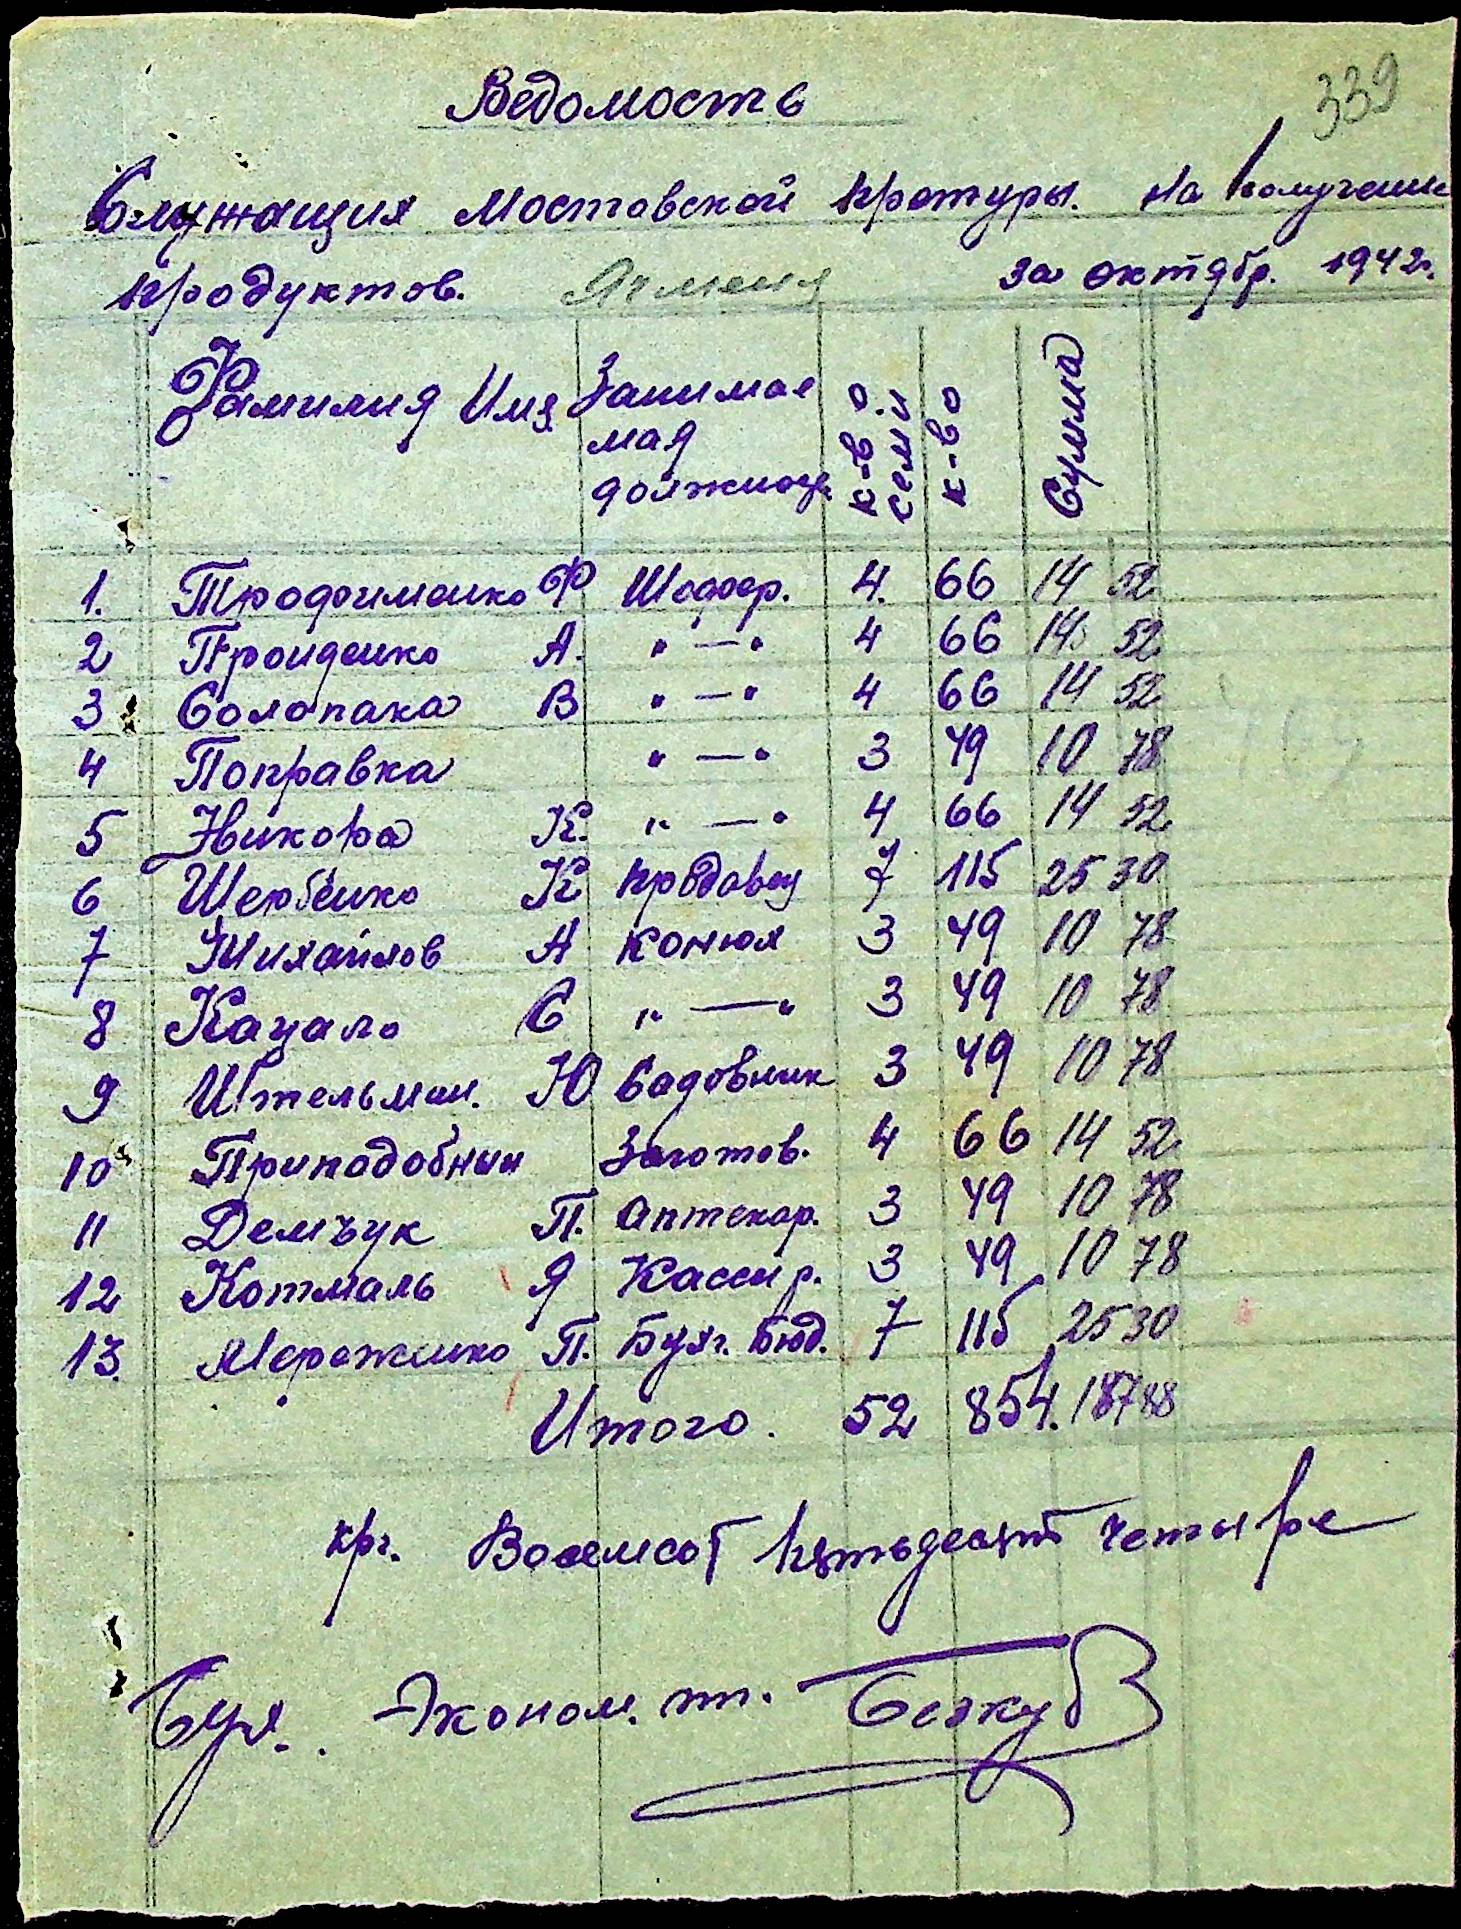 339
Ведомость
Служащих Мостовской претуры. на получение
продуктов. Ячменя за октябр. 1942г.
Фамилия Имя Занимае мая должност к-во семи к-во Сумма
1. Трофименко Ф Шофер. 4. 66 14 52
2 Пройденко А. " — " 4 66 14 52
3 Солопака В " — " 4 66 14 52
4 Поправка " — " 3 49 10 78
5 К. " — " 4 66 14 52
6 Шербенко К продавец 7 115 25 30
7 Михайлов А конюх 3 49 10 78
8 Кацало С " — " 3 49 10 78
9 Штельман. Ю Садовник 3 49 10 78
10 Приподобный Заготов. 4 66 14 52
11 Демчук П. Аптекар. 3 49 10 78
12 Котмаль Я Кассир. 3 49 10 78
13. Мероженко П. Бухг. Бюд. 7 115 25 30
Итого. 52 854. 187 88
кгр. Восемсот пятьдесят четыре
Бух. Эконом. пт.